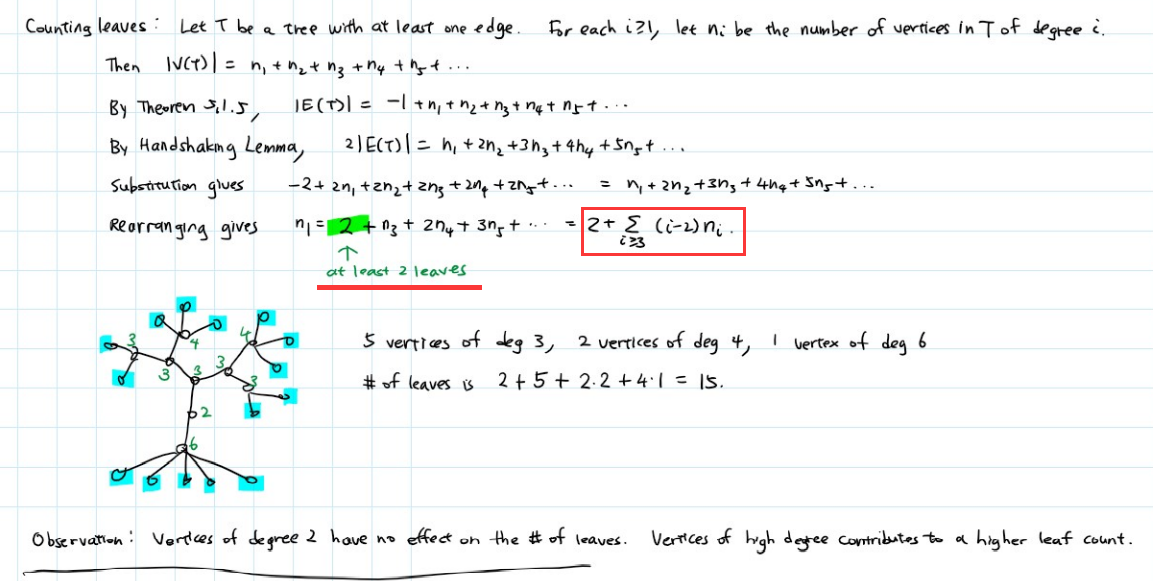 Counting leaves: Let T be a tree with at least one edge. For each i≥1, let nᵢ be the number of vertices in T of degree i.
Then |V(T)| = n₁ + n₂ + n₃ + n₄ + n₅ + ...
By Theorem 5.1.5, |E(T)| = -1 + n₁ + n₂ + n₃ + n₄ + n₅ + ...
By Handshaking Lemma, 2|E(T)| = n₁ + 2n₂ + 3n₃ + 4n₄ + 5n₅ + ...
Substitution gives -2 + 2n₁ + 2n₂ + 2n₃ + 2n₄ + 2n₅ + ... = n₁ + 2n₂ + 3n₃ + 4n₄ + 5n₅ + ...
Rearranging gives n₁ = 2 + n₃ + 2n₄ + 3n₅ + ... = 2 + Σ_{i≥3} (i-2) nᵢ.
↑
at least 2 leaves
3
4
4
3
3
3
3
2
6
5 vertices of deg 3, 2 vertices of deg 4, 1 vertex of deg 6
# of leaves is 2 + 5 + 2·2 + 4·1 = 15.
Observation: Vertices of degree 2 have no effect on the # of leaves. Vertices of high degree contributes to a higher leaf count.